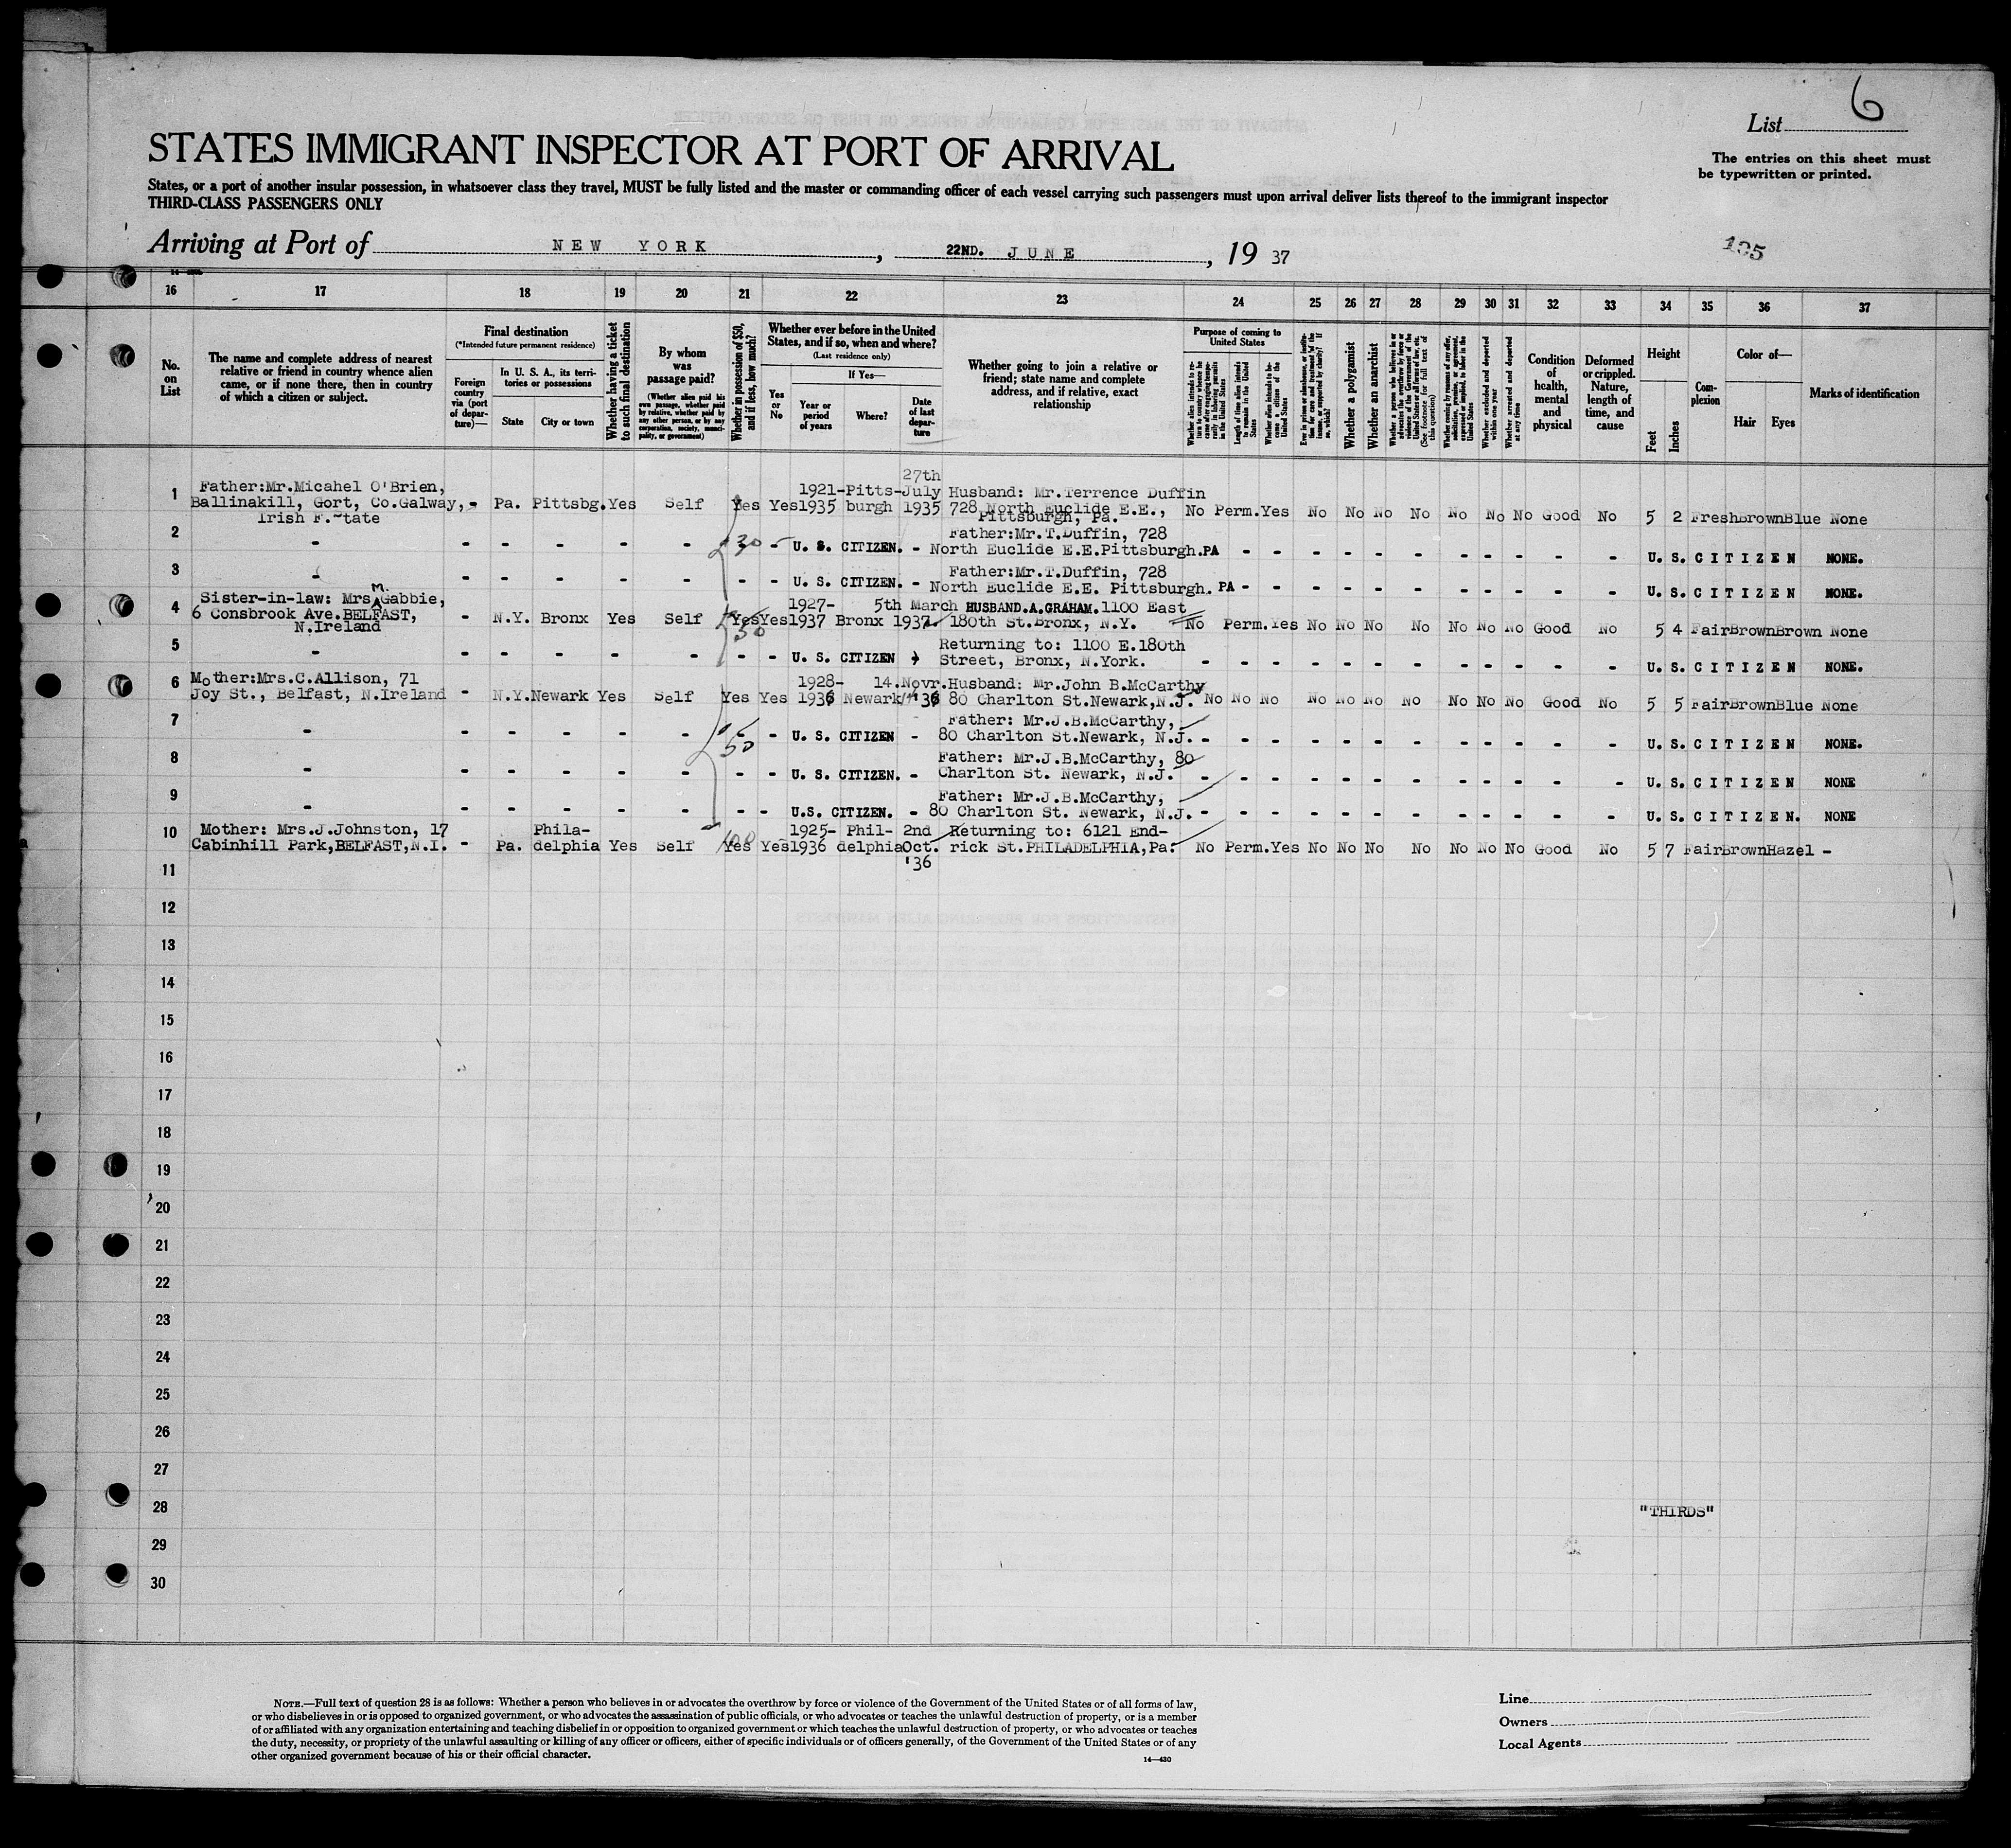 List 6
The entries on this sheet must
be typewritten or printed.
STATES IMMIGRANT INSPECTOR AT PORT OF ARRIVAL
States, or a port of another insular possession, in whatsoever class they travel, MUST be fully listed and the master or commanding officer of each vessel carrying such passengers must upon arrival deliver lists thereof to the immigrant inspector
THIRD-CLASS PASSENGERS ONLY
Arriving at Port of NEW YORK, 22ND. JUNE, 19 37
195
16 17 18 19 20 21 22 23 24 25 26 27 28 29 30 31 32 33 34 35 36 37
No. on List
The name and complete address of nearest
relative or friend in country whence alien
came, or if none there, then in country
of which a citizen or subject.
Final destination
(*Intended future permanent residence)
Foreign country via (port of departure)—
In U. S. A., its territories or possessions
State
City or town
Whether having a ticket to such final destination
By whom was passage paid?
(Whether alien paid his own passage, whether paid by relative, whether paid by any other person, or by any corporation, society, municipality, or government)
Whether in possession of $50, and if less, how much?
Whether ever before in the United
States, and if so, when and where?
(Last residence only)
Yes or No
If Yes—
Year or period of years
Where?
Date of last departure
Whether going to join a relative or
friend; state name and complete
address, and if relative, exact
relationship
Purpose of coming to United States
Whether alien intends to return to country whence he came after engaging temporarily in laboring pursuits in the United States
Length of time alien intends to remain in the United States
Whether alien intends to become a citizen of the United States
Whether a polygamist
Whether an anarchist
Whether excluded and deported within one year
Whether arrested and deported at any time
Condition of health, mental and physical
Deformed or crippled. Nature, length of time, and cause
Height
Feet
Inches
Complexion
Color of—
Hair
Eyes
Marks of identification
1 Father:Mr.Micahel O'Brien,
Ballinakill, Gort, Co.Galway,
Irish F. tate
- Pa. Pittsbg. Yes Self Yes Yes 1921-1935 Pittsburgh 27th July 1935 Husband: Mr.Terrence Duffin
728 North Euclide E.E.,
Pittsburgh, Pa.
No Perm. Yes No No No No No No No Good No 5 2 Fresh Brown Blue None
2 - - - - - - 30 - - U. S. CITIZEN. - Father:Mr.T.Duffin, 728
North Euclide E.E.Pittsburgh.PA - - - - - - - - - - - - U. S. CITIZEN NONE.
3 - - - - - - - - U. S. CITIZEN. - Father:Mr.T.Duffin, 728
North Euclide E.E. Pittsburgh. PA - - - - - - - - - - - - U. S. CITIZEN NONE.
4 Sister-in-law: Mrs M. Gabbie,
6 Consbrook Ave.BELFAST,
N.Ireland
- N.Y. Bronx Yes Self Yes 50 Yes 1927-1937 Bronx 5th March 1937 HUSBAND.A.GRAHAM.1100 East
180th St.Bronx, N.Y.
No Perm. Yes No No No No No No No Good No 5 4 Fair Brown Brown None
5 - - - - - - - - U. S. CITIZEN Returning to: 1100 E.180th
Street, Bronx, N.York. - - - - - - - - - - - - U. S. CITIZEN NONE.
6 Mother:Mrs.C.Allison, 71
Joy St., Belfast, N.Ireland
- N.Y. Newark Yes Self Yes Yes 1928-1936 Newark 14.Novr. '36 Husband: Mr.John B.McCarthy
80 Charlton St.Newark,N.J.
No No No No No No No No No No Good No 5 5 Fair Brown Blue None
7 - - - - - - 50 - - U. S. CITIZEN - Father: Mr.J.B.McCarthy,
80 Charlton St.Newark, N.J. - - - - - - - - - - - - U. S. CITIZEN NONE.
8 - - - - - - - - U. S. CITIZEN. - Father: Mr.J.B.McCarthy, 80
Charlton St. Newark, N.J. - - - - - - - - - - - - U. S. CITIZEN NONE
9 - - - - - - - - U.S. CITIZEN. - Father: Mr.J.B.McCarthy,
80 Charlton St. Newark, N.J. - - - - - - - - - - - - U. S. CITIZEN. NONE
10 Mother: Mrs.J.Johnston, 17
Cabinhill Park,BELFAST,N.I.
- Pa. Philadelphia Yes Self 100 Yes Yes 1925-1936 Philadelphia 2nd Oct. '36 Returning to: 6121 End-
rick St.PHILADELPHIA,Pa.
No Perm. Yes No No No No No No No Good No 5 7 Fair Brown Hazel -
11
12
13
14
15
16
17
18
19
20
21
22
23
24
25
26
27
28 "THIRDS"
29
30
NOTE.—Full text of question 28 is as follows: Whether a person who believes in or advocates the overthrow by force or violence of the Government of the United States or of all forms of law,
or who disbelieves in or is opposed to organized government, or who advocates the assassination of public officials, or who advocates or teaches the unlawful destruction of property, or is a member
of or affiliated with any organization entertaining and teaching disbelief in or opposition to organized government or which teaches the unlawful destruction of property, or who advocates or teaches
the duty, necessity, or propriety of the unlawful assaulting or killing of any officer or officers, either of specific individuals or of officers generally, of the Government of the United States or of any
other organized government because of his or their official character.
14—430
Line
Owners
Local Agents